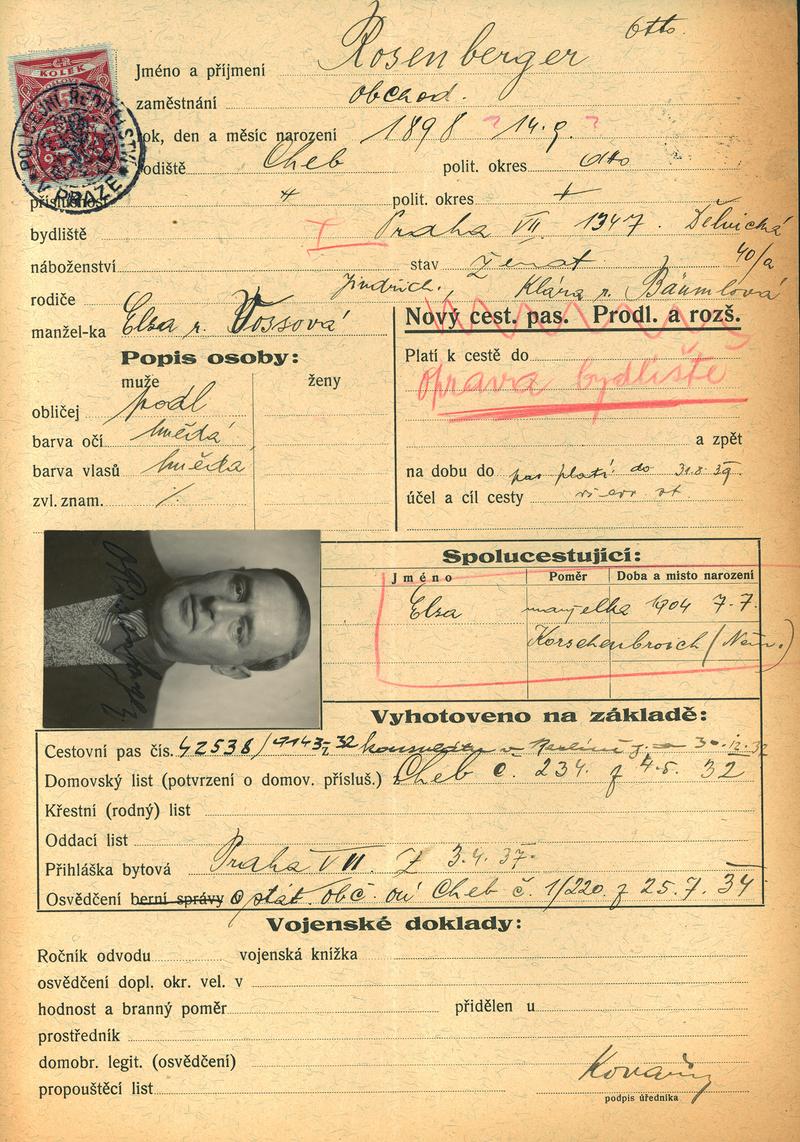 Otto.
Jméno a příjmení Rosenberger
KOLEK
POLICEJNÍ ŘEDITELSTVÍ V PRAZE
zaměstnání obchod.
rok, den a měsíc narození 1898 ? 14.9. ?
rodiště Cheb polit. okres dto
příslušnost polit. okres
bydliště Praha VII. 1347. Dělnická
40/a
náboženství stav ženat
rodiče Jindrich., Klára r. Bäumlová
manžel-ka Elza r. Vossová
Nový cest. pas. Prodl. a rozš.
Popis osoby:
Platí k cestě do
muže ženy
oprava bydliště
obličej podl
barva očí hnědá
a zpět
barva vlasů hnědá
na dobu do pas platí do 31.8.39.
zvl. znam. ·/.
účel a cíl cesty
Spolucestující:
Jméno Poměr Doba a místo narození
Elsa manželka 1904 7.7.
Korschenbroich (Něm.)
Vyhotoveno na základě:
Cestovní pas čís. 42538/ 32 konsulátu v Berlíně 32
Domovský list (potvrzení o domov. přísluš.) Cheb č. 234. z 4.5. 32
Křestní (rodný) list
Oddací list
Přihláška bytová Praha VII. z 3.4.37.
Osvědčení berní správy o stát. obč. oú Cheb č. 1/220. z 25.7.34
Vojenské doklady:
Ročník odvodu vojenská knížka
osvědčení dopl. okr. vel. v
hodnost a branný poměr přidělen u
prostředník
domobr. legit. (osvědčení)
propouštěcí list
podpis úředníka